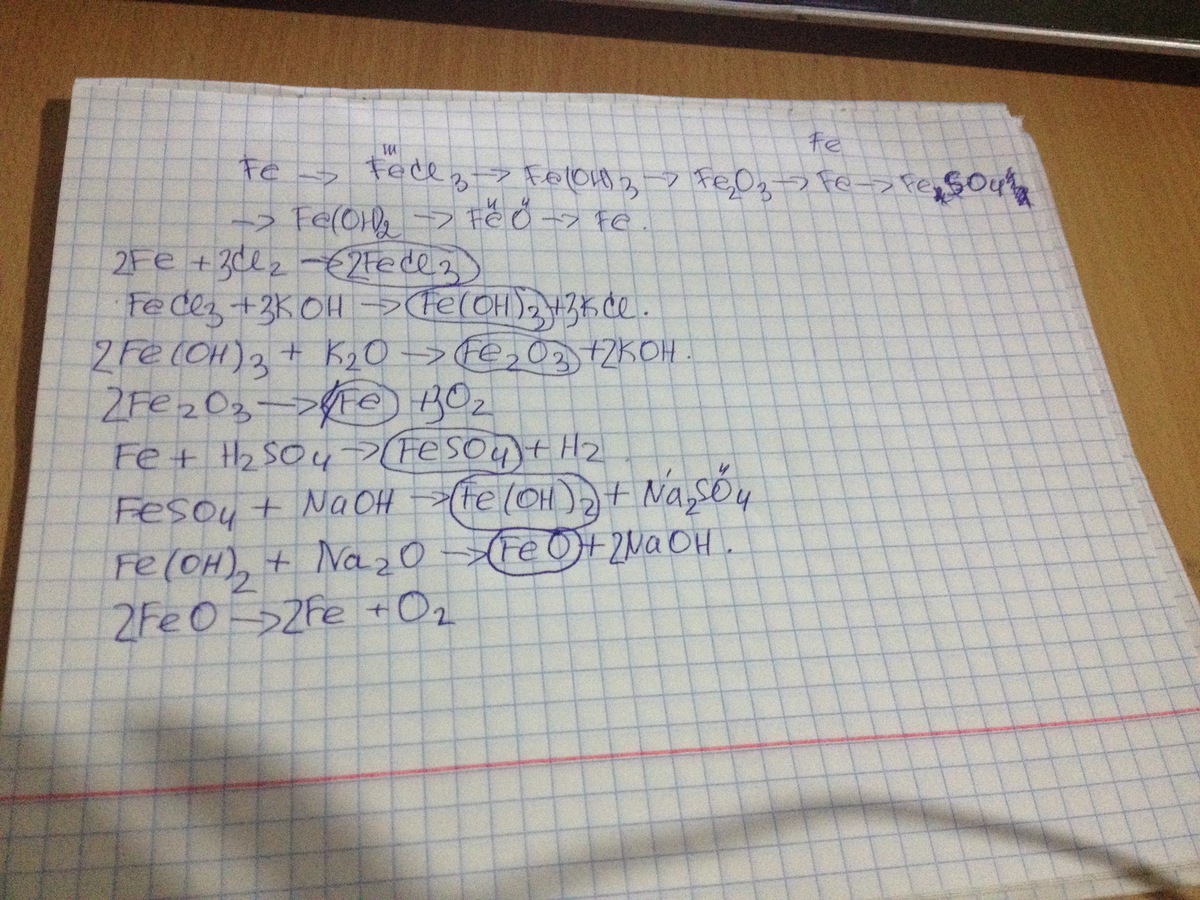 Fe
Fe → FeCl3 → Fe(OH)3 → Fe2O3 → Fe → FeSO4
→ Fe(OH)2 → FeO → Fe.
2Fe + 3Cl2 → 2FeCl3
FeCl3 + 3KOH → Fe(OH)3 + 3KCl.
2Fe(OH)3 + K2O → Fe2O3 + 2KOH.
2Fe2O3 → Fe + 3O2
Fe + H2SO4 → FeSO4 + H2
FeSO4 + NaOH → Fe(OH)2 + Na2SO4
Fe(OH)2 + Na2O → FeO + 2NaOH.
2FeO → 2Fe + O2